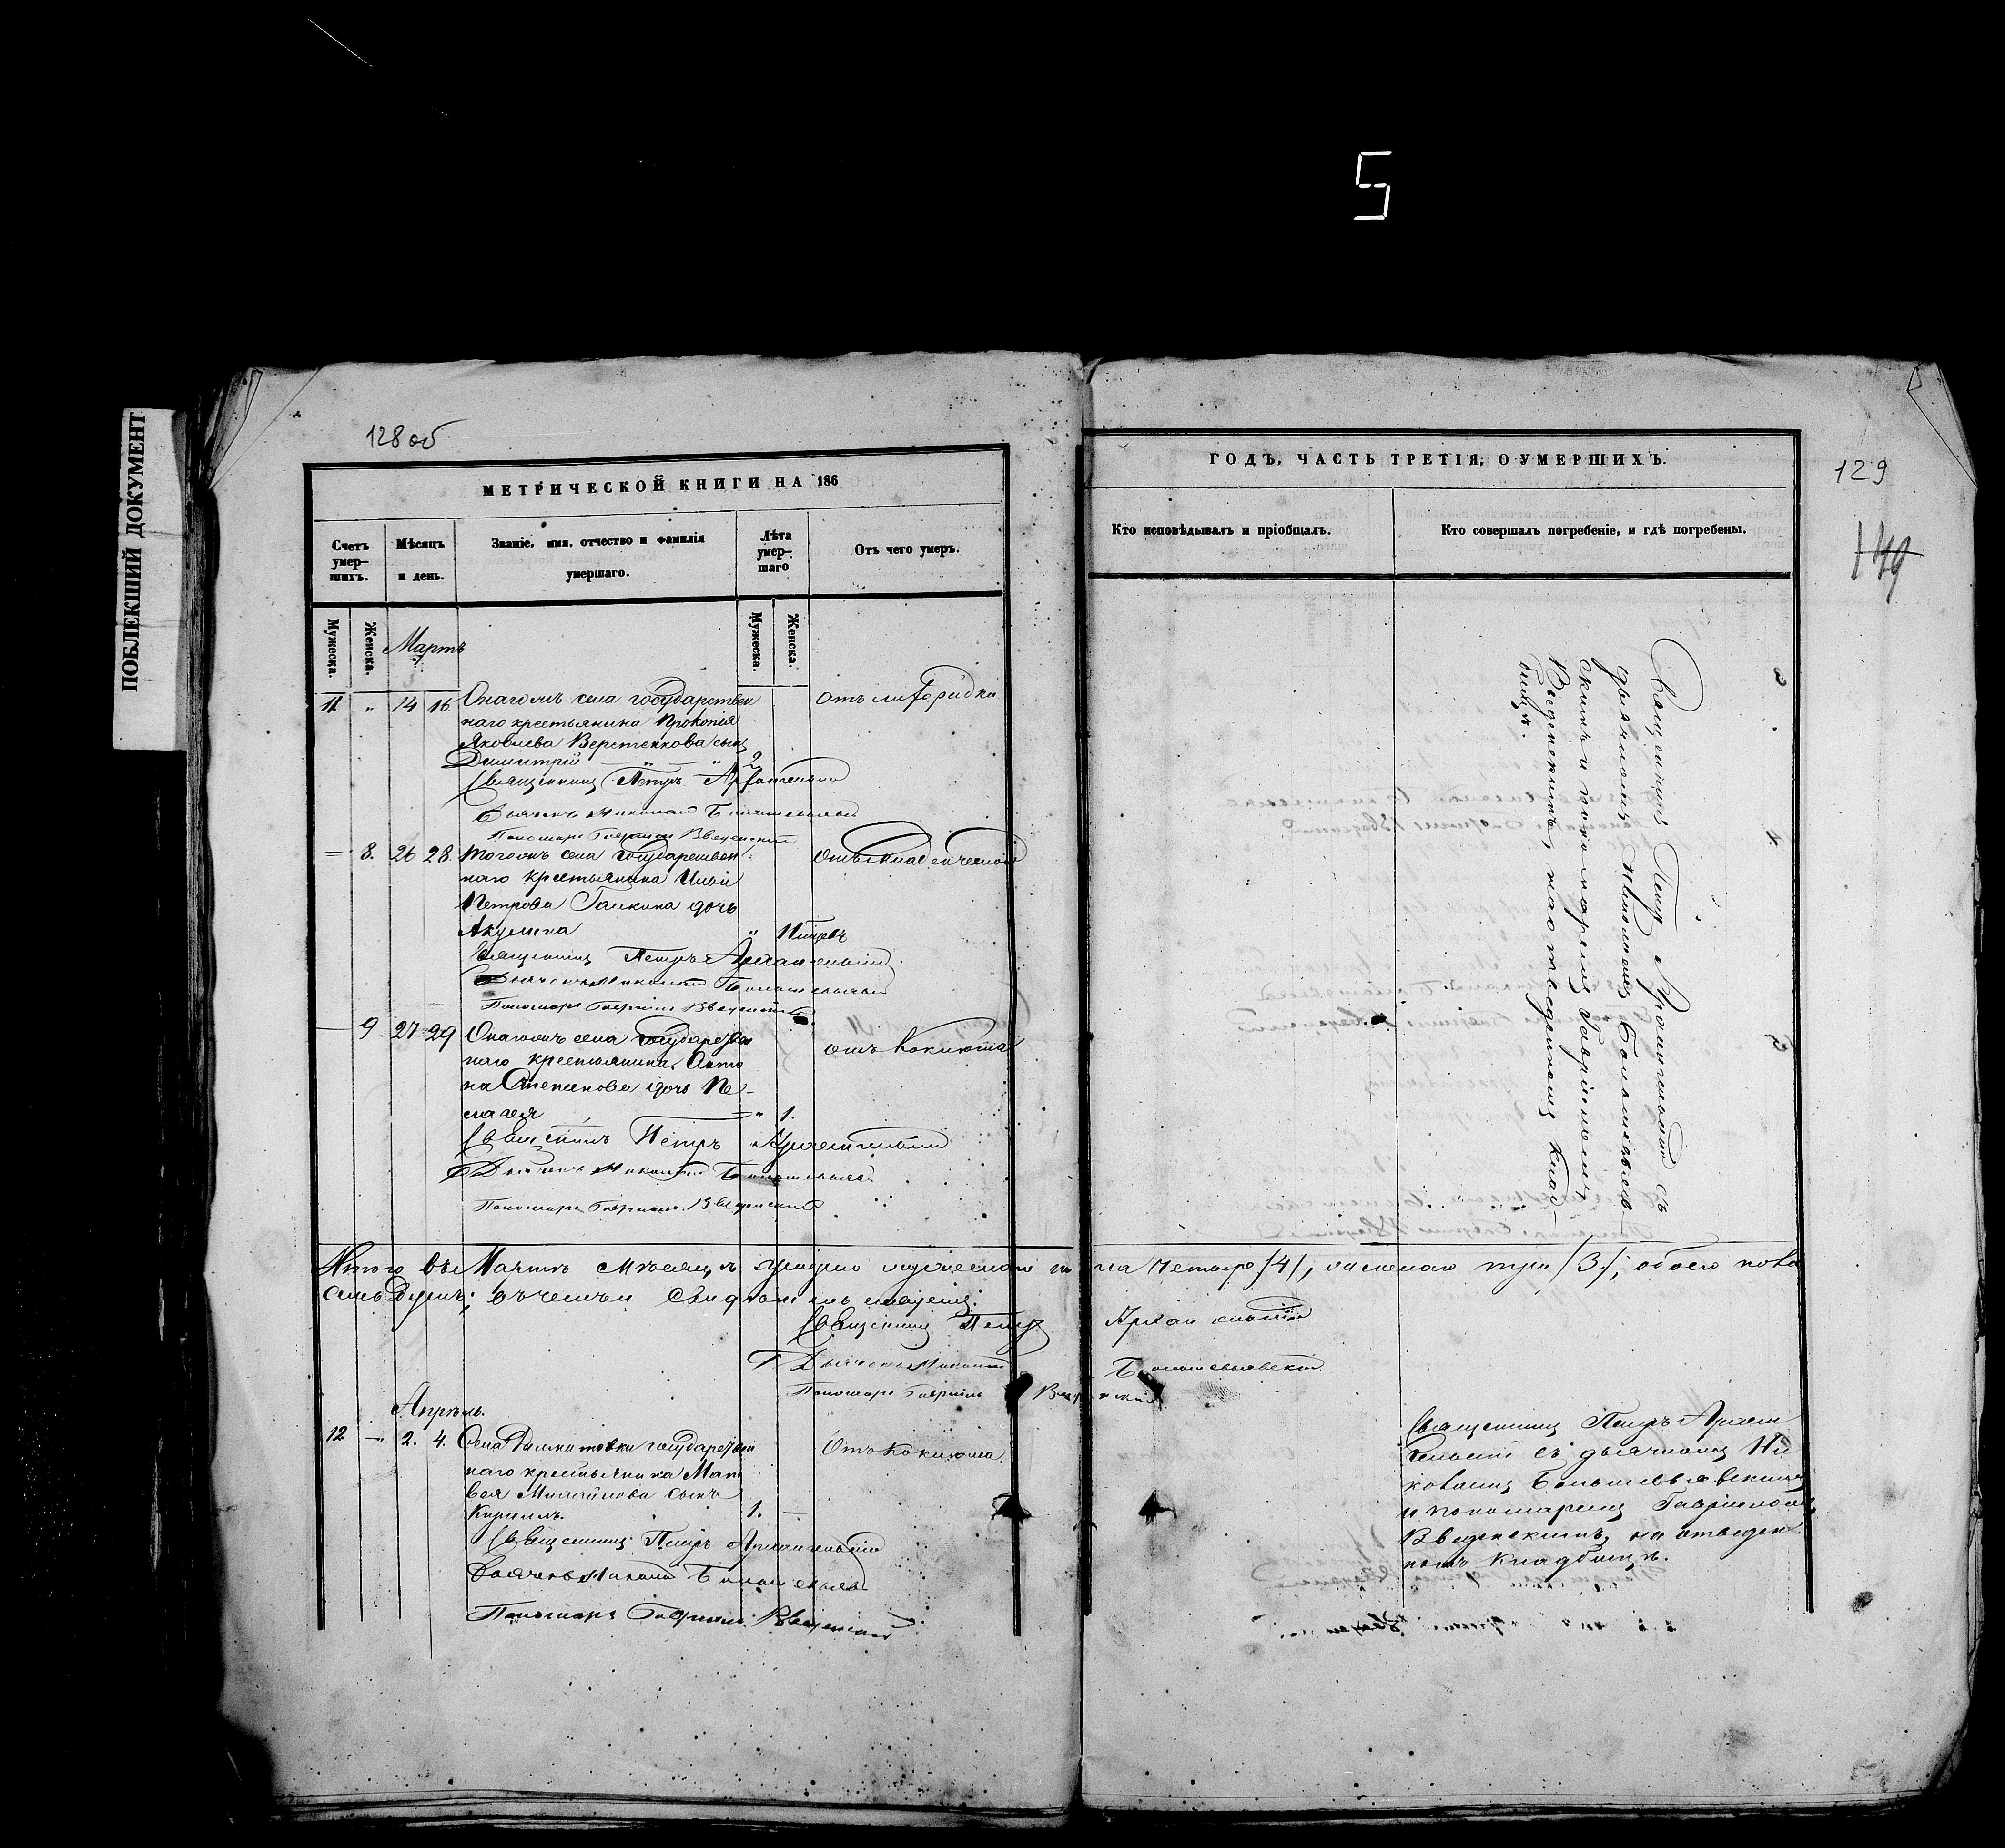 5
ПОБЛЕКШИЙ ДОКУМЕНТ
128 об
МЕТРИЧЕСКОЙ КНИГИ НА 186
Счетъ умер-шихъ.
Мѣсяцъ и день.
Званіе, имя, отчество и фамилія умершаго.
Лѣта умер-шаго
Отъ чего умеръ.
Мужеска.
Женска.
Мартъ
Мужеска.
Женска.
11 " 14 16 Онагожъ села государствен
наго крестьянина Прокопія
Яковлева Веретенкова сынъ
Димитрій " 2
Священникъ Петръ Архангельскій
Дьячекъ Николай
Пономарь Гавріилъ Введенскій
— 8. 26 28 Тогожъ села государствен
наго крестьянина Ильи
Петрова Галкина дочь
Акулина "
Священникъ Петръ Архангельскій
Дьячекъ Николай
Пономарь Гавріилъ Введенскій
— 9 27 29 Онагожъ села государствен
наго крестьянина Анто
на Степанова дочь Пе-
лагея " 1.
отъ коклюша
Священникъ Петръ Архангельскій
Дьячекъ Николай
Пономарь Гавріилъ Введенскій
Итого въ Мартѣ мѣсяцѣ умерло мужескаго по ла четыре /4/, женскаго три /3./, обоего пола
семь душъ;
Священникъ Петръ Архангельскій
Дьячекъ Николай
Пономарь Гавріилъ Введенскій
Апрѣль.
12 — 2. 4. Села государствен
наго крестьянина Мат
вея Михайлова сынъ
Кириллъ. 1. —
Отъ коклюша.
Священникъ Петръ Архангельскій
Дьячекъ Николай
Пономарь Гавріилъ Введенскій
ГОДЪ, ЧАСТЬ ТРЕТІЯ, О УМЕРШИХЪ.
129
149
Кто исповѣдывалъ и пріобщалъ.
Кто совершалъ погребеніе, и гдѣ погребены.
Священникъ Петръ Архангельскій съ
дьячкомъ Николаемъ Большесельев-
скимъ и пономаремъ Гавріиломъ
Введенскимъ, на отведенномъ клад-
бищѣ.
Священникъ Петръ Архан
гельскій съ дьячкомъ Ни
колаемъ
и пономаремъ Гавріиломъ
Введенскимъ, на отведен
номъ кладбищѣ.